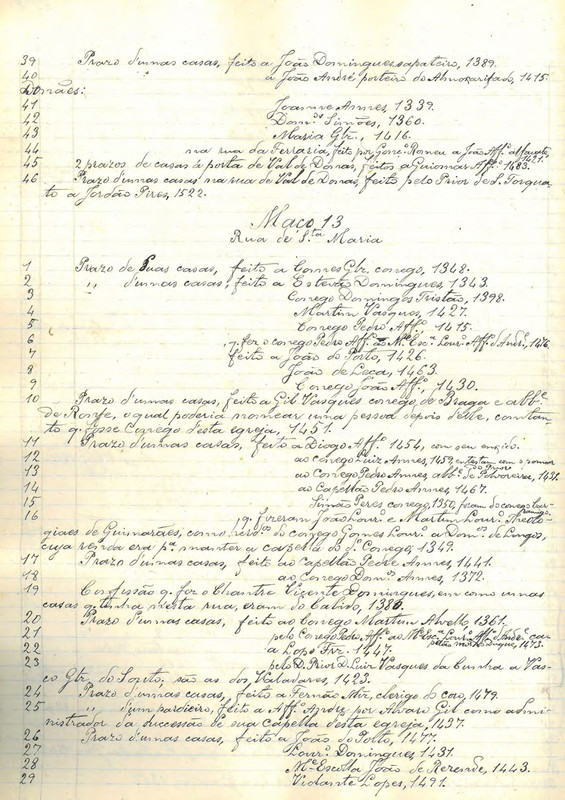 39 Prazo d'umas casas, feito a João Domingues sapateiro, 1389.
40 a João André porteiro do Almoxarifado, 1415.
Donães:
41 Joanne Annes, 1339.
42 Domos Simões, 1360.
43 Maria Glz., 1416.
44 na rua da Ferraria, feito por Gonc. Romeu a João Affo alfayate, 1421.
45 2 prazos de casas à porta de Val de Donas, feitos a Guiomar Affo, 1483.
46 Prazo d'umas casas na rua de Val de Donas, feito pelo Prior de S. Torqua-
to a Jordão Pires, 1522.
Maço 13
Rua de Sta Maria
1 Prazo de duas casas, feito a Gomes Glz. conego, 1348.
2 ,, d'umas casas, feito a Estevão Domingues, 1343.
3 Conego Domingos Tristão, 1398.
4 Martim Vasques, 1427.
5 Conego Pedro Affo, 1415.
6 q. fez o conego Pedro Affo ao Me Esca Louro Affo d'André, 1476.
7 feito a João do Porto, 1426.
8 João de Lessa, 1463.
9 Conego João Affo, 1430.
10 Prazo d'umas casas, feito a Gil Vasques conego de Braga e abbe
de Ronfe, o qual poderia nomear uma pessoa depois delle, com tan-
to q. fosse Conego d'esta egreja, 1451.
11 Prazo d'umas casas, feito a Diogo Affo, 1454, com seu enxido.
12 ao conego Luiz Annes, 1457,
13 ao Conego Pedro Annes, abbe de Polvoreira, 1431.
14 ao Capellão Pedro Annes, 1467.
15 Simão Peres conego, 1350, foram do conego Lour
16 q. fizeram João Louro e Martim Louro,
giaes de Guimarães, como herdos do conego Gomes Louro a Domos de Longos,
cuja renda era pa manter a capella do do Conego, 1349.
17 Prazo d'umas casas, feito ao Capellão Pedro Annes, 1441.
18 ao Conego Domos Annes, 1372.
19 Confissão q. fez o Chantre Vicente Domingues, em como umas
casas q. tinha n'esta rua, eram do Cabido, 1386.
20 Prazo d'umas casas, feito ao Conego Martim Alvello, 1361.
21 pelo Conego Pedro Affo ao Me Esca Louro Affo d'André ca-
pellão mor 1473.
22 a Lopo Frz., 1447.
23 pelo D. Prior D. Luiz Vasques da Cunha a Vas-
co Glz. do Souto; são as dos Valadares, 1423.
24 Prazo d'umas casas, feito a Fernão Miz, clerigo do coro, 1479.
25 ,, d'um pardieiro, feito a Affo André por Alvaro Gil como admi-
nistrador da successão de sua Capella d'esta egreja, 1437.
26 Prazo d'umas casas, feito a João do Porto, 1477.
27 Louro Domingues, 1431.
28 Me Escolla João de Rezende, 1443.
29 Violante Lopes, 1491.